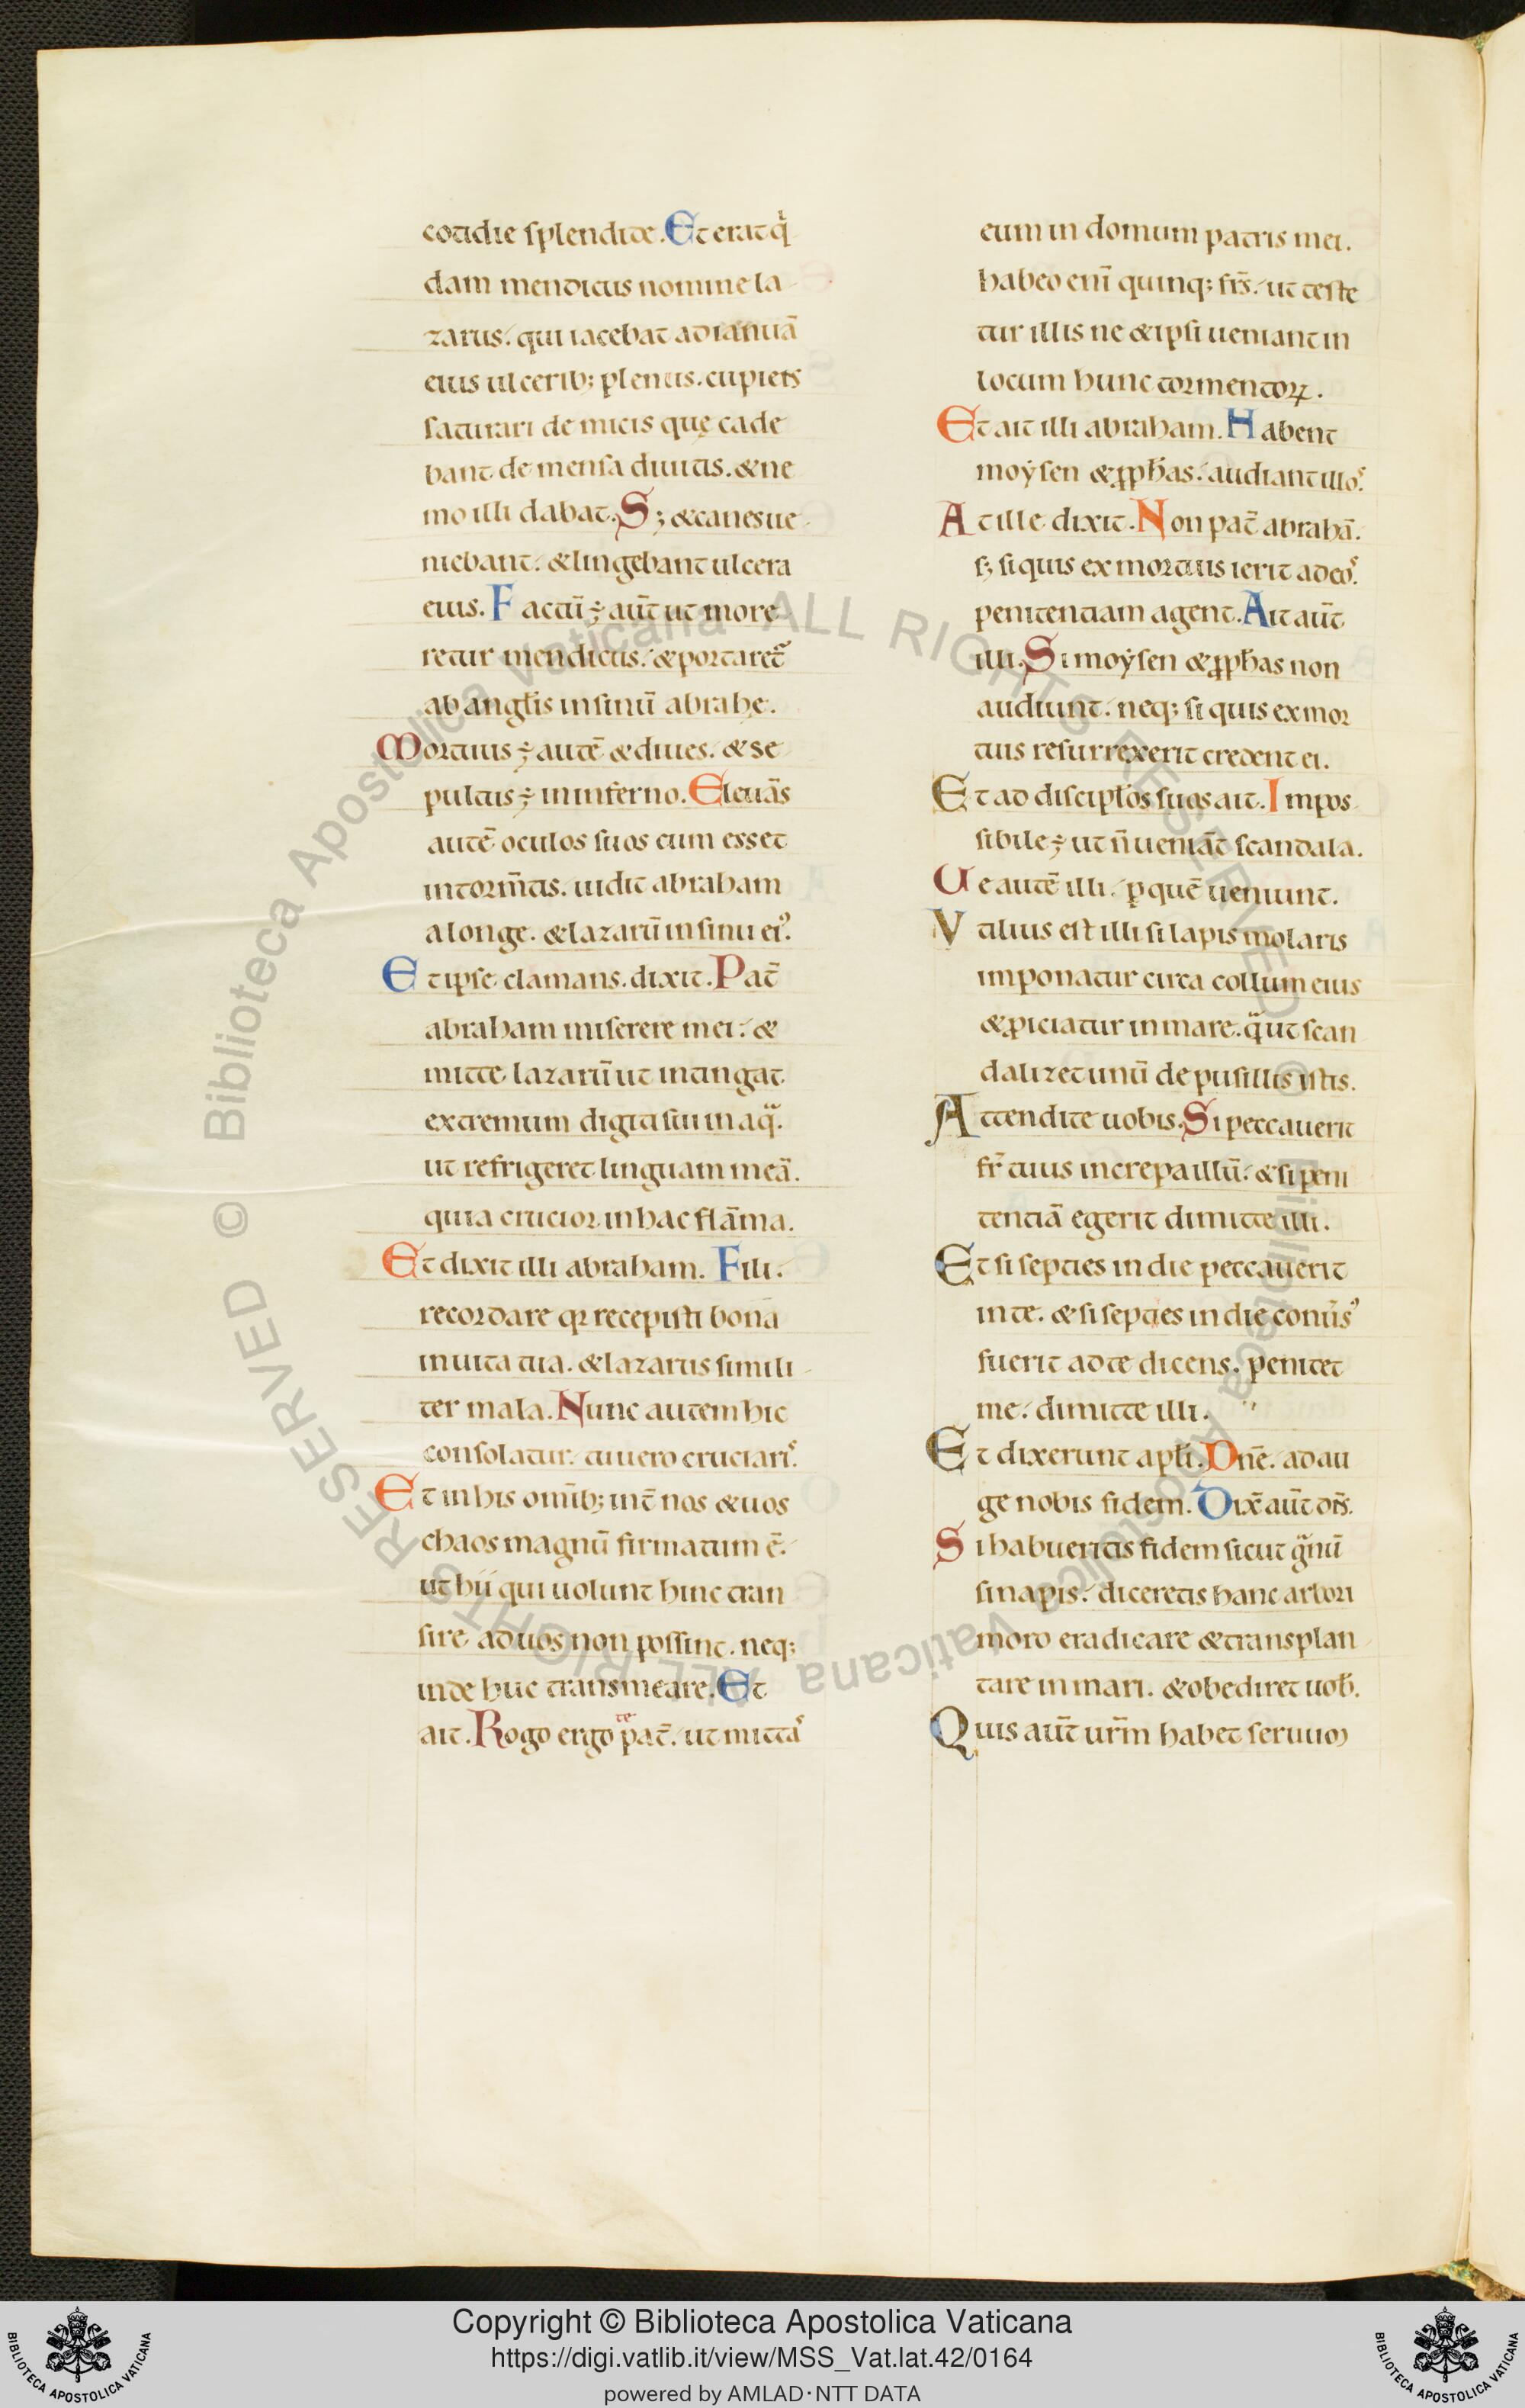 cotidie splendide. Et erat q̇
dam mendicus nomine la
zarus. qui iacebat ad ianuā
eius ulcerib; plenus. cupiens
saturari de micis quę cade
bant de mensa diuitis. & ne
mo illi dabat. S; & canes ue
niebant. & lingebant ulcera
eius. Factū ÷ aūt ut more
retur mendicus. & portaret᷑
ab angl̄is in sinū abrahę.
Mortuus ÷ autē & diues. & se
pultus ÷ in inferno. Eleuās
autē oculos suos cum esset
in torm̄tis. uidit abraham
a longe. & lazarū in sinu ei᾽.
Et ipse clamans. dixit. Pat̄
abraham miserere mei. &
mitte lazarū ut intingat
extremum digiti sui in aq̄.
ut refrigeret linguam meā.
quia crucior in hac flāma.
Et dixit illi abraham. Fili.
recordare qr recepisti bona
in uita tua. & lazarus simili
ter mala. Nunc autem hic
consolatur. tu uero cruciaris.
Et in his omīb; int̄ nos & uos
chaos magnū firmatum ē.
ut hii qui uolunt hinc tran
sire ad uos non possint. neq;
inde huc transmeare. Et
ait. Rogo ergo te pat̄. ut mittas
eum in domum patris mei.
habeo eni̅ quinq; fr̄s. ut teste
tur illis ne & ipsi ueniant in
locum hunc tormentoꝝ.
Et ait illi abraham. Habent
moẏsen & ꝓph̄as. audiant illos.
At ille dixit. Non pat̄ abrahā.
s; si quis ex mortuis ierit ad eos.
penitentiam agent. Ait aūt
illi. Si moẏsen & ꝓph̄as non
audiunt. neq; si quis ex mor
tuis resurrexerit credent ei.
Et ad discipl̄os suos ait. Impos
sibile ÷ ut n̄ ueniāt scandala.
Ue autē illi. ꝑ quē ueniunt.
Vtilius est illi si lapis molaris
imponatur circa collum eius
& ꝓiciatur in mare. q̄ ut scan
dalizet unū de pusillis istis.
Attendite uobis. Si peccauerit
fr̄ tuus increpa illū. & si peni
tentiā egerit dimitte illi.
Et si septies in die peccauerit
in te. & si septies in die conūs᾽
fuerit ad te dicens. penitet
me. dimitte illi.
Et dixerunt apl̄i. Dn̄e. adau
ge nobis fidem. Dix̄ aūt dn̄s.
Si habueritis fidem sicut g̃nū
sinapis. diceretis hanc arbori
moro eradicare & transplan
tare in mari. & obediret uob̄.
Quis aūt ur̄m habet seruum
Copyright © Biblioteca Apostolica Vaticana
https://digi.vatlib.it/view/MSS_Vat.lat.42/0164
powered by AMLAD·NTT DATA
BIBLIOTECA APOSTOLICA VATICANA
BIBLIOTECA APOSTOLICA VATICANA
© Biblioteca Apostolica Vaticana ALL RIGHTS RESERVED
© Biblioteca Apostolica Vaticana ALL RIGHTS RESERVED